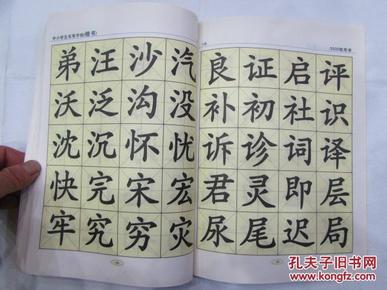 中小学生实用字帖(楷书)
弟汪沙汽
沃泛沟没
沈沉怀忧
快完宋宏
牢究穷灾
3500常用字
良证启评
补初社识
诉诊词译
君灵即层
尿尾迟局
孔夫子旧书网